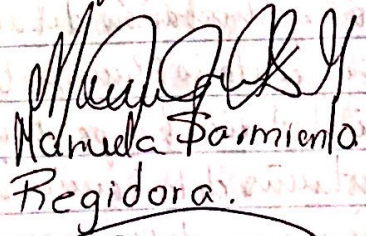 Manuela Sarmiento
Regidora.